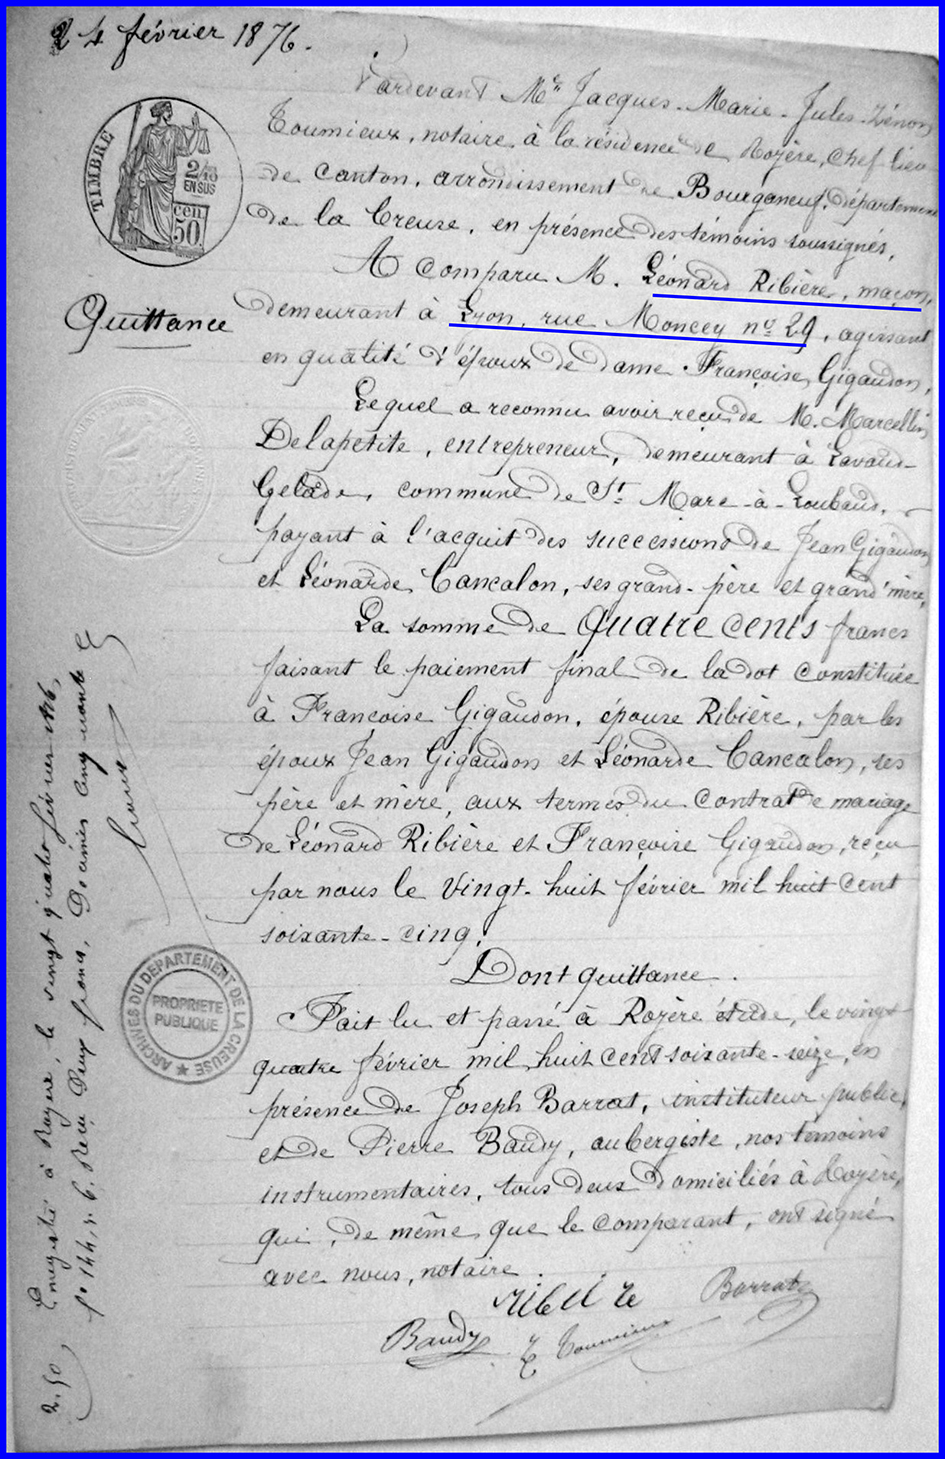 24 février 1876.
Pardevant Me Jacques-Marie-Jules-Zénon
Toumieux, notaire à la résidence de Royère, chef lieu
de canton, arrondissement de Bourganeuf, département
de la Creuse, en présence des témoins soussignés,
TIMBRE
2/10
EN SUS
50 cen
A comparu M. Léonard Ribière, maçon,
demeurant à Lyon, rue Moncey no 29, agissant
Quittance
en qualité d'époux de dame Françoise Gigaudon,
Lequel a reconnu avoir reçu de M. Marcellin
Delapetite, entrepreneur, demeurant à Lavaud-
Gelade, commune de St Marc-à-Loubaud,
payant à l'acquit des successions de Jean Gigaudon
et Léonarde Cancalon, ses grand-père et grand'mère,
La somme de Quatre cents francs
faisant le paiement final de la dot constituée
à Francoise Gigaudon, épouse Ribière, par les
époux Jean Gigaudon et Léonarde Cancalon, ses
père et mère, aux termes du contrat de mariage
de Léonard Ribière et Françoise Gigaudon, reçu
par nous le vingt-huit février mil huit cent
soixante-cinq.
Dont quittance.
Fait lu et passé à Royère étude, le vingt
quatre février mil huit cent soixante-seize, en
présence de Joseph Barrat, instituteur public,
et de Pierre Baudy, aubergiste, nos témoins
instrumentaires, tous deux domiciliés à Royère,
qui, de même que le comparant, ont signé
avec nous, notaire.
Ribière
Barrat
Baudy
Z Toumieux
ARCHIVES DU DEPARTEMENT DE LA CREUSE
PROPRIETE
PUBLIQUE
Enregistré à Royère, le vingt quatre février 1876,
fo 144, r. 6. Reçu deux francs, Decimes cinquante c
2.50